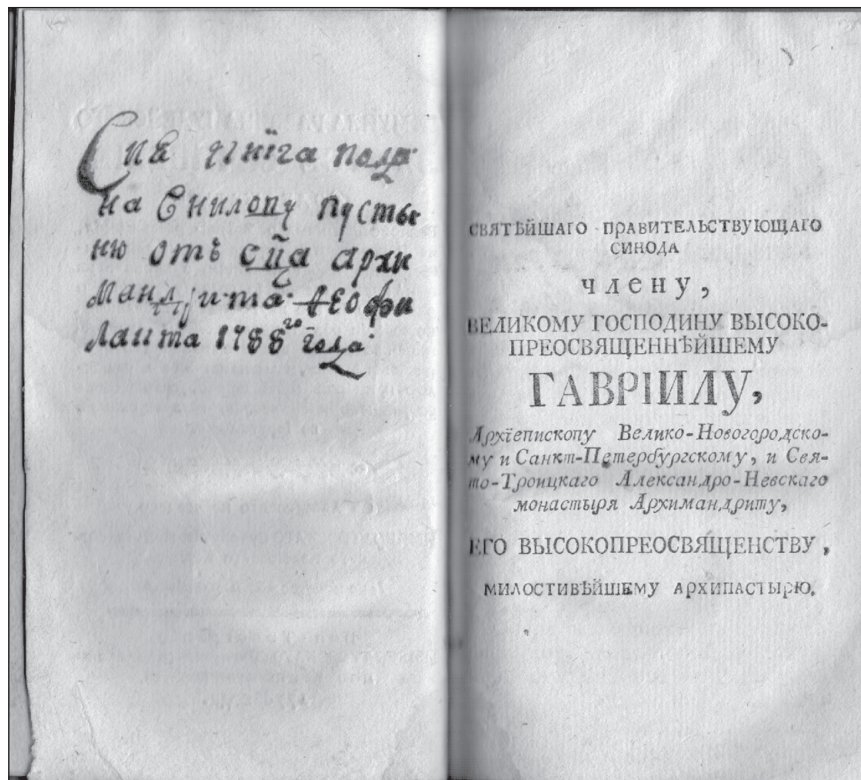 Сия книга пода
на Внилову пусты
ню отъ о͠ца архи
мандрита Ѳеофи
лакта 1788го года
СВЯТѢЙШАГО ПРАВИТЕЛЬСТВУЮЩАГО
СИНОДА
члену,
ВЕЛИКОМУ ГОСПОДИНУ ВЫСОКО-
ПРЕОСВЯЩЕННѢЙШЕМУ
ГАВРІИЛУ,
Архїепископу Велико-Новогородско-
му и Санкт-Петербургскому, и Свя-
то-Троицкаго Александро-Невскаго
монастыря Архимандриту,
ЕГО ВЫСОКОПРЕОСВЯЩЕНСТВУ,
МИЛОСТИВѢЙШЕМУ АРХИПАСТЫРЮ.